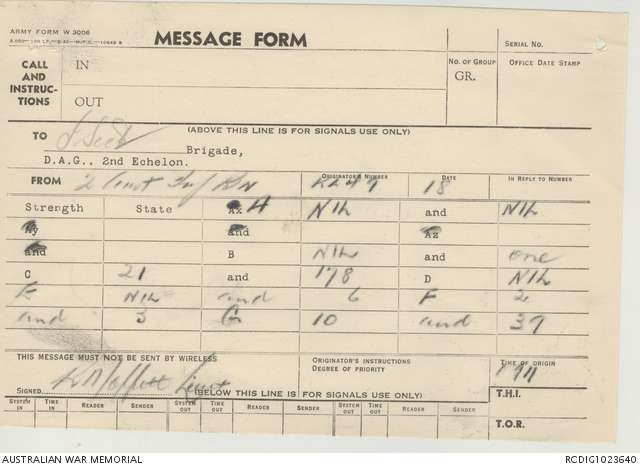 ARMY FORM W 3006
MESSAGE FORM
SERIAL NO.
CALL AND INSTRUC- TIONS
IN
OUT
NO. OF GROUP
GR.
OFFICE DATE STAMP
(ABOVE THIS LINE IS FOR SIGNALS USE ONLY)
TO Brigade,
D.A.G., 2nd Echelon.
FROM ORIGINATOR'S NUMBER DATE IN REPLY TO NUMBER
2 Inf BN 18
Strength State A NIL and NIL
Ay and Az
and B NIL and one
C 21 and 178 D NIL
E NIL and 6 F 2
and 3 G 10 and 37
THIS MESSAGE MUST NOT BE SENT BY WIRELESS
ORIGINATOR'S INSTRUCTIONS
DEGREE OF PRIORITY
TIME OF ORIGIN
SIGNED Moffett Lieut
(BELOW THIS LINE IS FOR SIGNALS USE ONLY)
T.H.I.
SYSTEM IN TIME IN READER SENDER SYSTEM OUT TIME OUT READER SENDER SYSTEM OUT TIME OUT READER SENDER
T.O.R.
AUSTRALIAN WAR MEMORIAL
RCDIG1023640